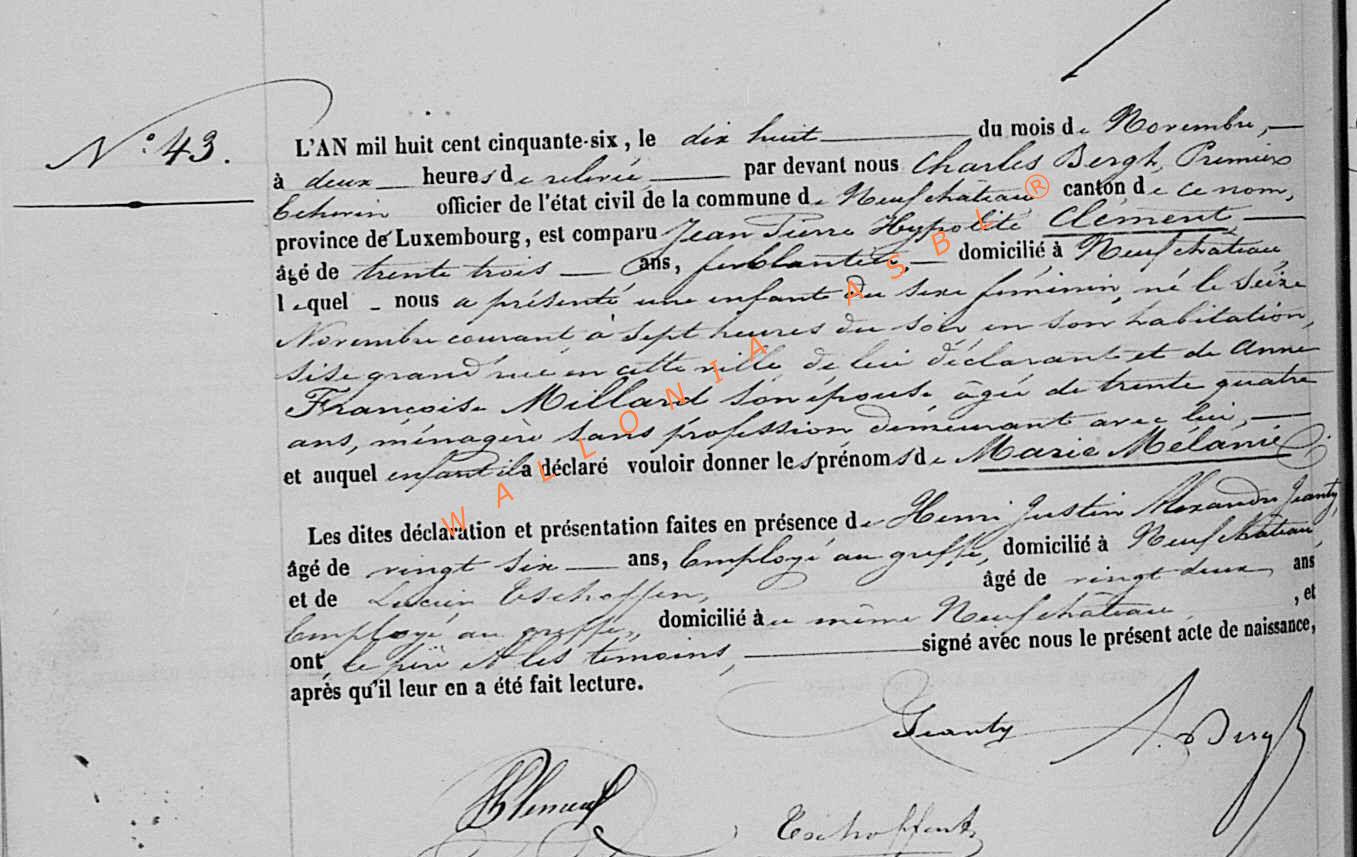 N.º 43.
L'AN mil huit cent cinquante-six, le dix huit du mois de Novembre,
à deux heures de relevée par devant nous Charles Bergh, Premier
Echevin officier de l'état civil de la commune de Neufchateau canton de ce nom,
province de Luxembourg, est comparu Jean Pierre Hypolite Clément
âgé de trente trois ans, ferblantier, domicilié à Neufchateau,
lequel nous a présenté une enfant du sexe féminin, né le Seize
Novembre courant à Sept heures du soir en son habitation,
sise grand'rue en cette ville de lui déclarant et de Anne
Françoise Millard son épouse âgée de trente quatre
ans, ménagère sans profession demeurant avec lui,
et auquel enfant il a déclaré vouloir donner les prénoms de Marie Mélanie
Les dites déclaration et présentation faites en présence de Henri Justin Alexandre Jeanty,
âgé de vingt six ans, Employé au greffe, domicilié à Neufchateau
et de Lucien Tschoffen, âgé de vingt deux ans
Employé au greffe, domicilié à même Neufchâteau , et
ont le père et les témoins, signé avec nous le présent acte de naissance,
après qu'il leur en a été fait lecture.
Jeanty Bergh
Clement
Tschoffen
WALLONIA ASBL ®